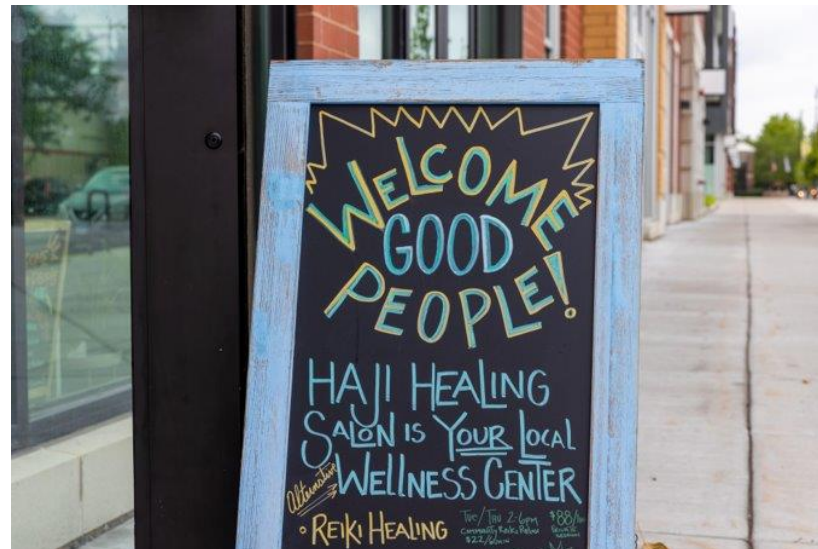 WELCOME
GOOD
PEOPLE!
HAJI HEALING
SALON IS YOUR LOCAL
Alternative WELLNESS CENTER
• REIKI HEALING
Tue/Thu 2-6pm
Community Reiki
$88/hr